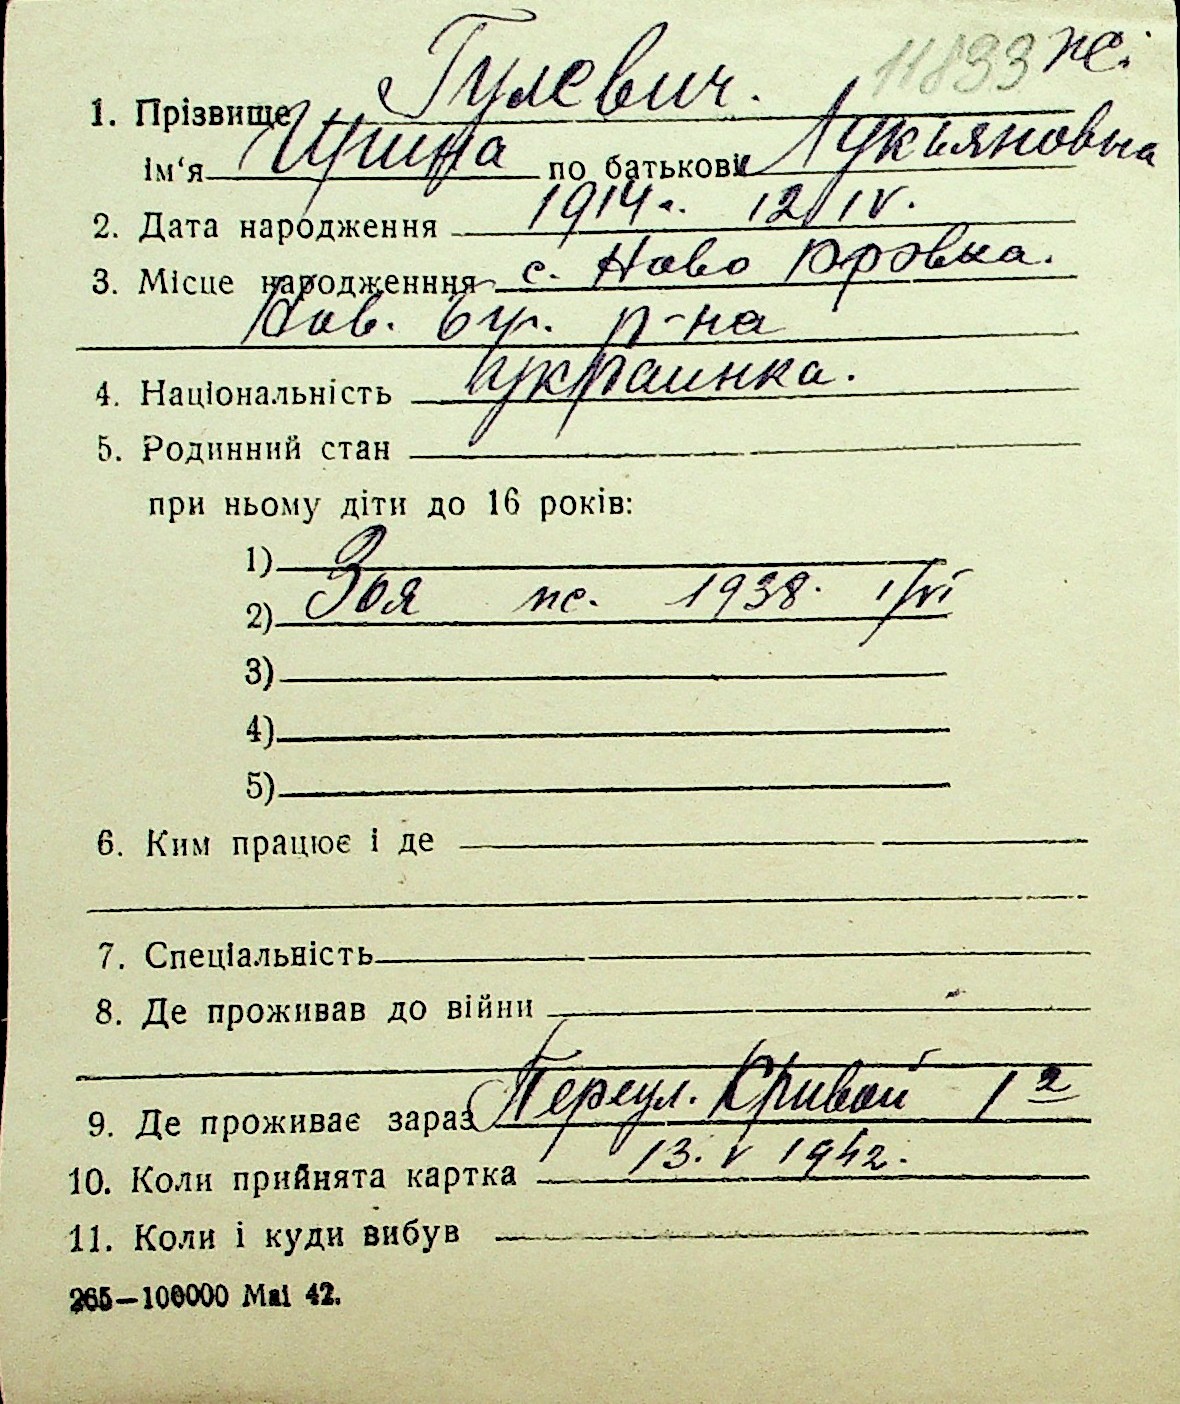 11833 ж.
1. Прізвище Гулевич.
ім‘я Ирина по батькові Лукьяновна
2. Дата народження 1914 г. 12/IV.
3. Місце народженння с. Ново Юровка.
Нов. Бур. р-на
4. Національність украинка.
5. Родинний стан
при ньому діти до 16 років:
1)
2) Зоя ж. 1938. 1/VI
3)
4)
5)
6. Ким працює і де
7. Спеціальність
8. Де проживав до війни
9. Де проживає зараз Переул. Кривой 1
10. Коли прийнята картка 13. V 1942.
11. Коли і куди вибув
265—100000 Маі 42.